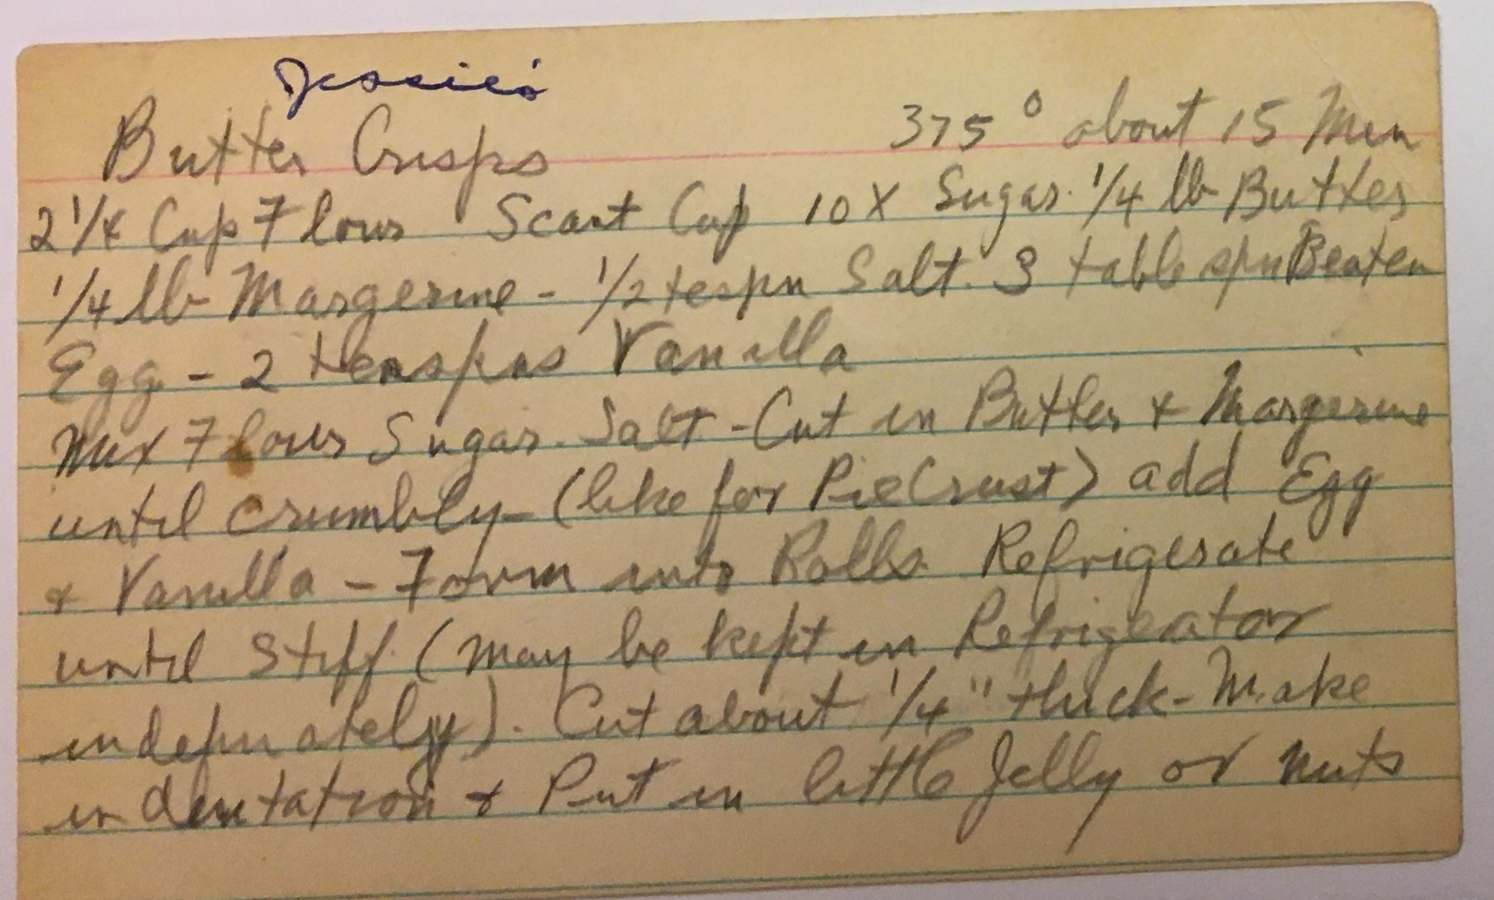 Jessie's
Butter Crisps 375° about 15 Min
2 1/4 Cup Flour Scant Cup 10X Sugar. 1/4 lb Butter
1/4 lb Margerine - 1/2 tespn Salt. 3 tablespn Beaten
Egg - 2 teaspns Vanilla
Mix Flour Sugar. Salt - Cut in Butter & Margerine
until crumbly - (like for Pie Crust) add Egg
& Vanilla - Form into Rolls. Refrigerate
until Stiff. (may be kept in Refrigerator
indefinately). Cut about 1/4" thick - Make
indentation & Put in little Jelly or nuts